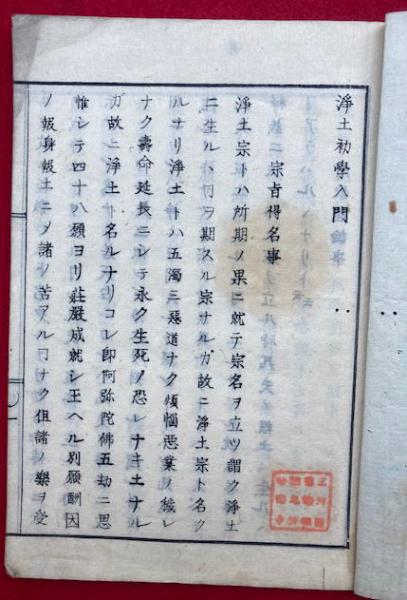 淨土初學入門
宗旨得名事
淨土宗トハ所期ノ果ニ就テ宗名ヲ立ツ謂ク淨土
ニ生ルヽ事ヲ期スル宗ナルガ故ニ淨土宗ト名ク
ルナリ淨土トハ五濁三惡道ナク煩惱惡業ノ穢レ
ナク壽命延長ニシテ永ク生死ノ恐レナキ土ナル
ガ故ニ淨土ト名ルナリコレ卽阿弥陀佛五劫ニ思
惟シテ四十八願ヨリ莊嚴成就シ玉ヘル別願酬因
ノ報身報土ニメ諸ノ苦アル𫝂ナク但諸ノ樂ヲ受